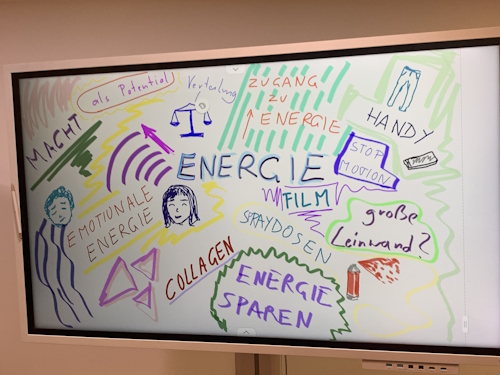 als Potential
Verteilung
ZUGANG
ZU
ENERGIE
HANDY
MACHT
ENERGIE
STOP
MOTION
FILM
EMOTIONALE
ENERGIE
SPRAYDOSEN
große
Leinwand?
COLLAGEN
ENERGIE
SPAREN